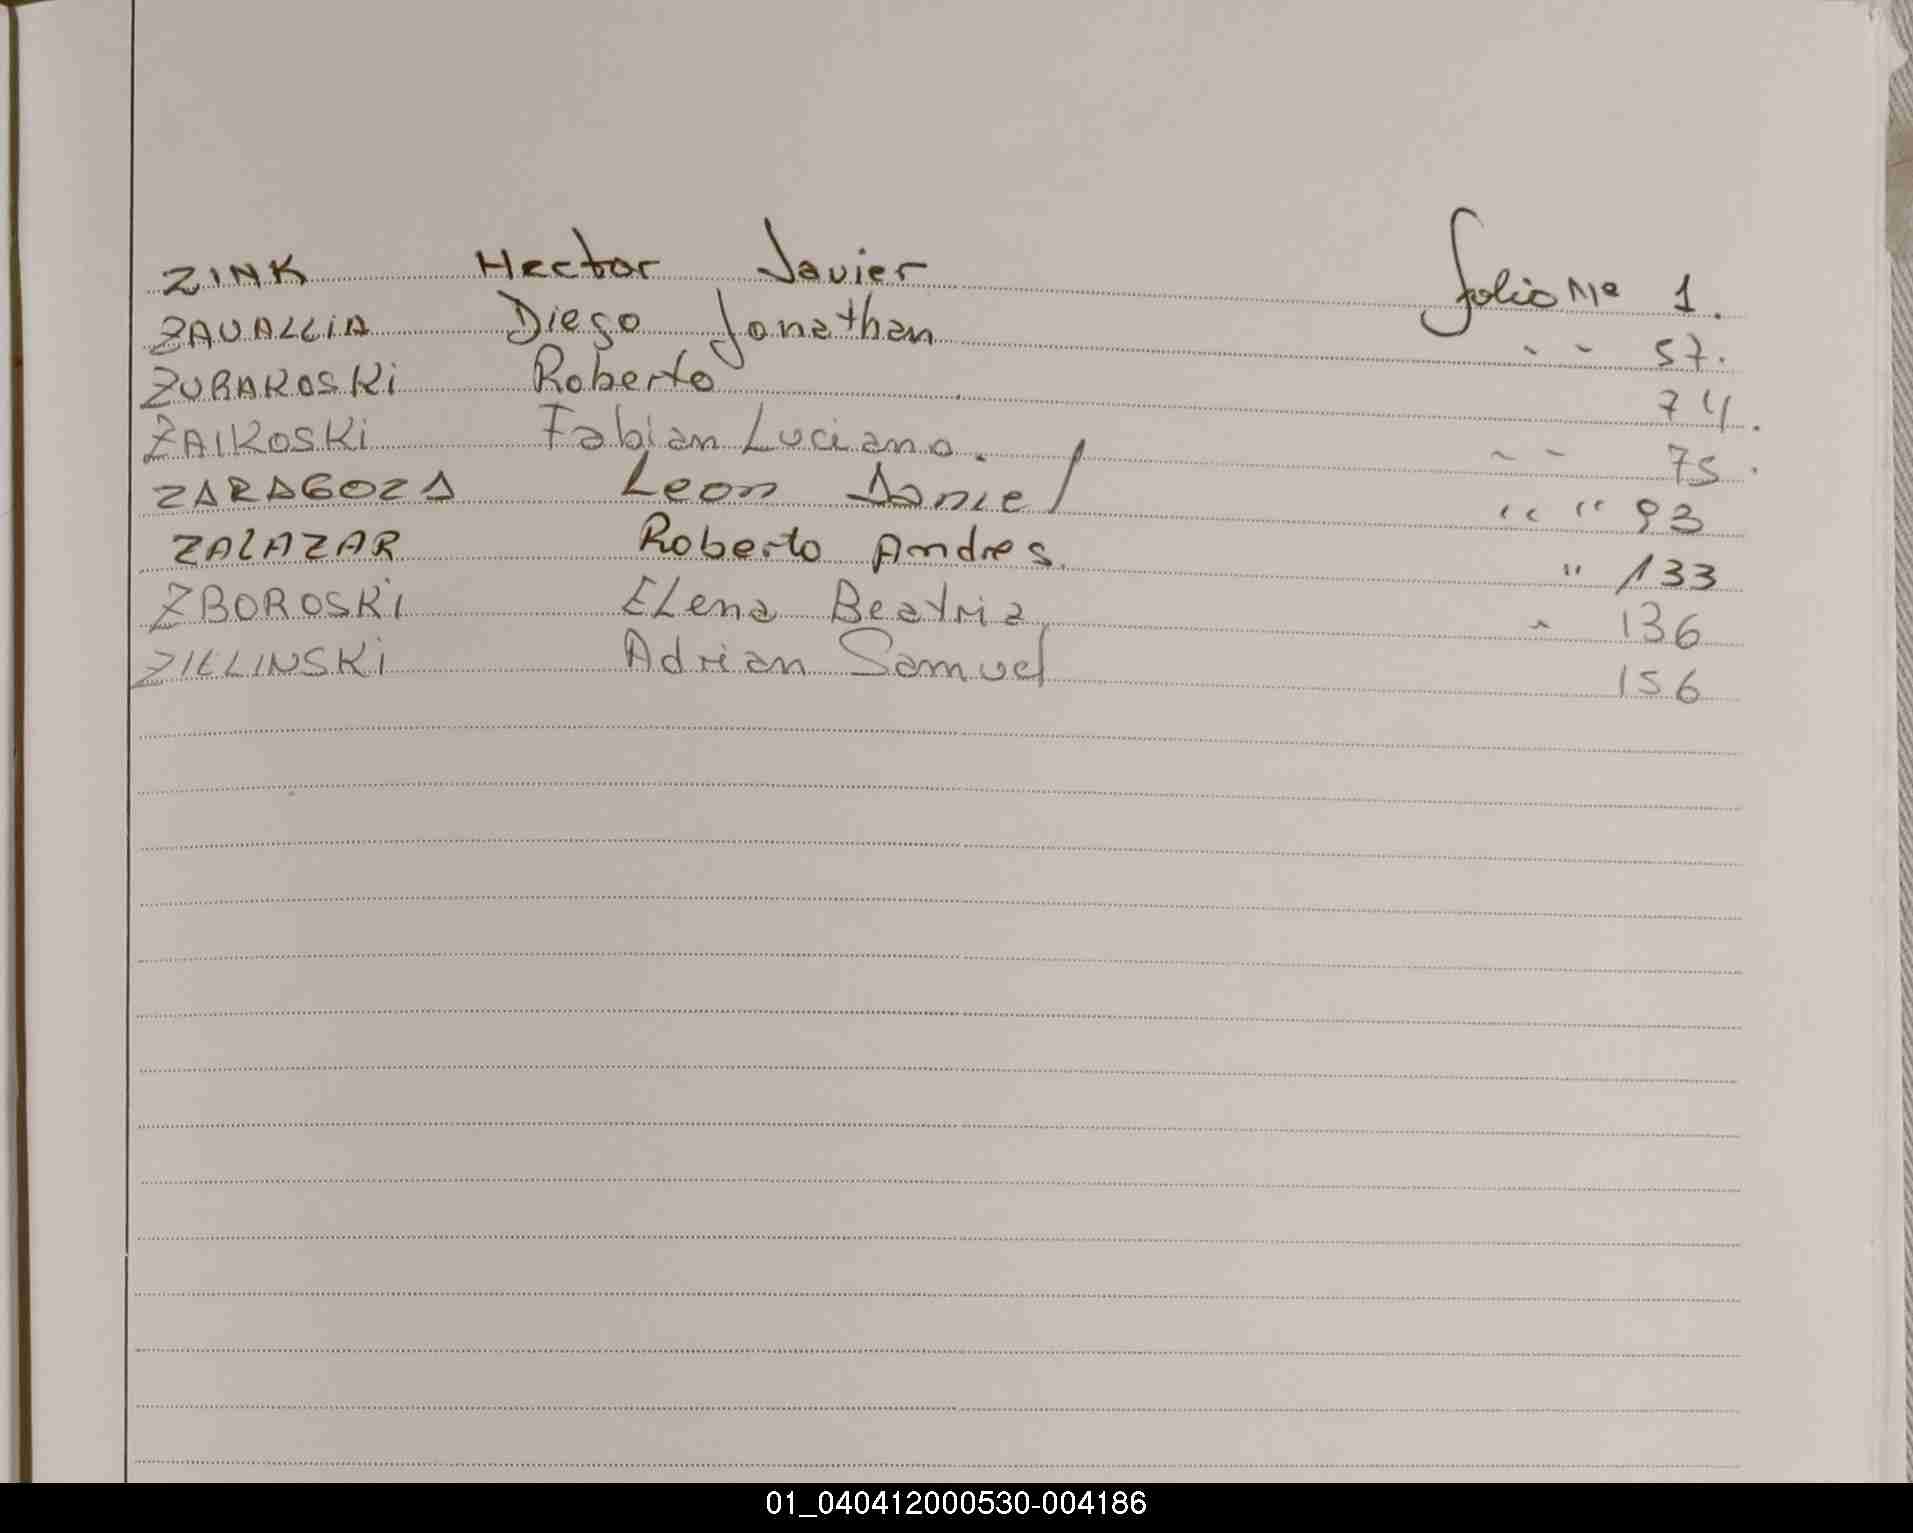 ZINK Hector Javier folio Nº 1.
ZAVALLIA Diego Jonathan " " 57.
ZURAKOSKi Roberto 74.
ZAIKOSKi Fabian Luciano. " " 75.
ZARAGOZA Leon Daniel " " 93
ZALAZAR Roberto Andres. " 133
ZBOROSKi ELena Beatriz " 136
ZILLINSKi Adrian Samuel 156
01_040412000530-004186